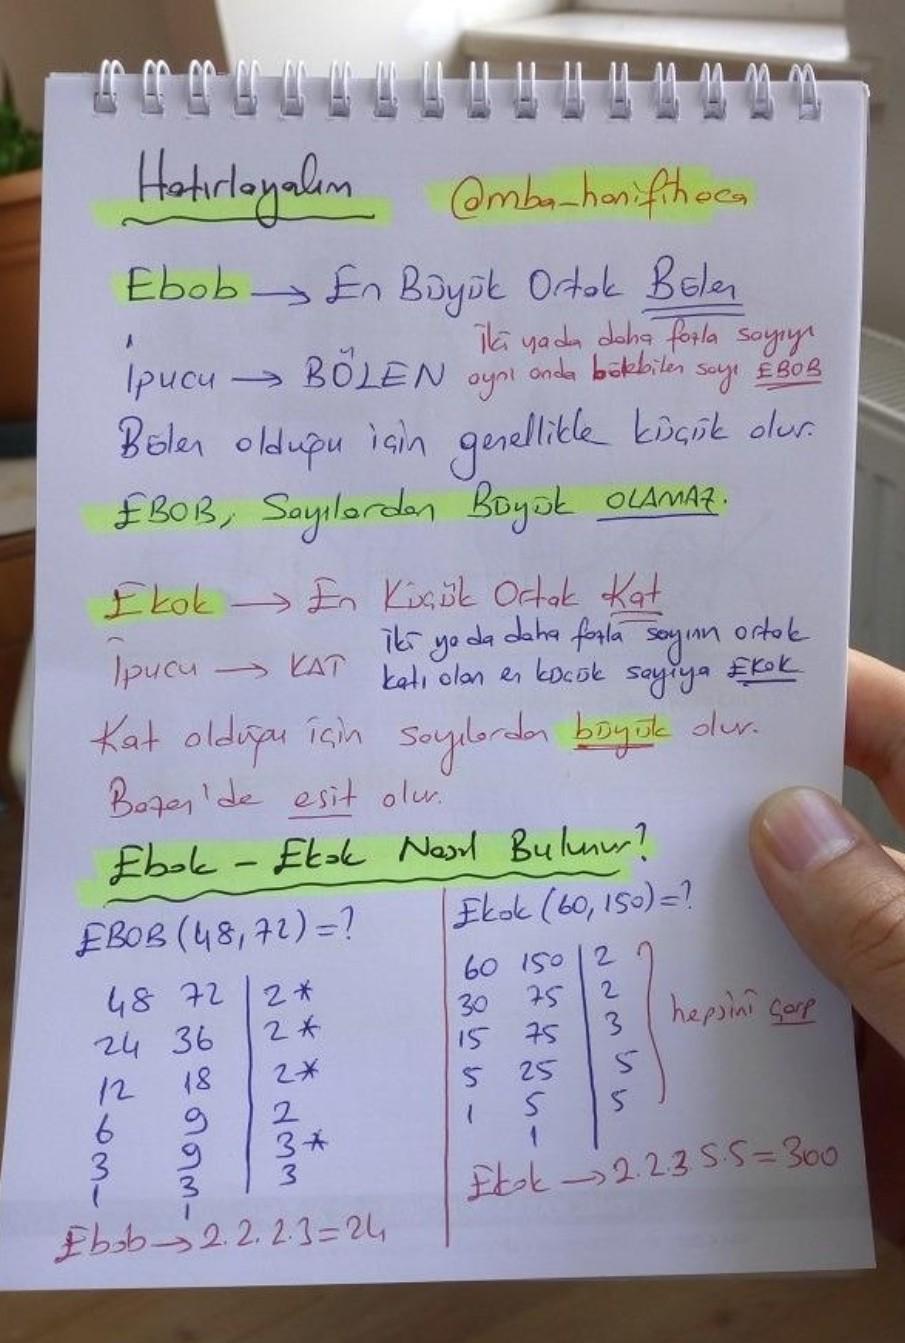 Hatırlayalım @mba_hanifihoca
Ebob → En Büyük Ortak Bölen
İki yada daha fazla sayıyı
İpucu → BÖLEN aynı anda bölebilen sayı EBOB
Bölen olduğu için genellikle küçük olur.
EBOB, Sayılardan Büyük OLAMAZ.
Ekok → En Küçük Ortak Kat
İki ya da daha fazla sayının ortak
İpucu → KAT katı olan en küçük sayıya EKOK
Kat olduğu için sayılardan büyük olur.
Bazen'de eşit olur.
Ebok - Ekok Nasıl Bulunur?
EBOB (48,72) = ?
48 72 | 2*
24 36 | 2*
12 18 | 2*
6 9 | 2
3 9 | 3*
1 3 | 3
1
Ebob → 2.2.2.3=24
Ekok (60,150)=?
60 150 | 2
30 75 | 2
15 75 | 3
5 25 | 5
1 5 | 5
1
hepsini çarp
Ekok → 2.2.3.5.5=300